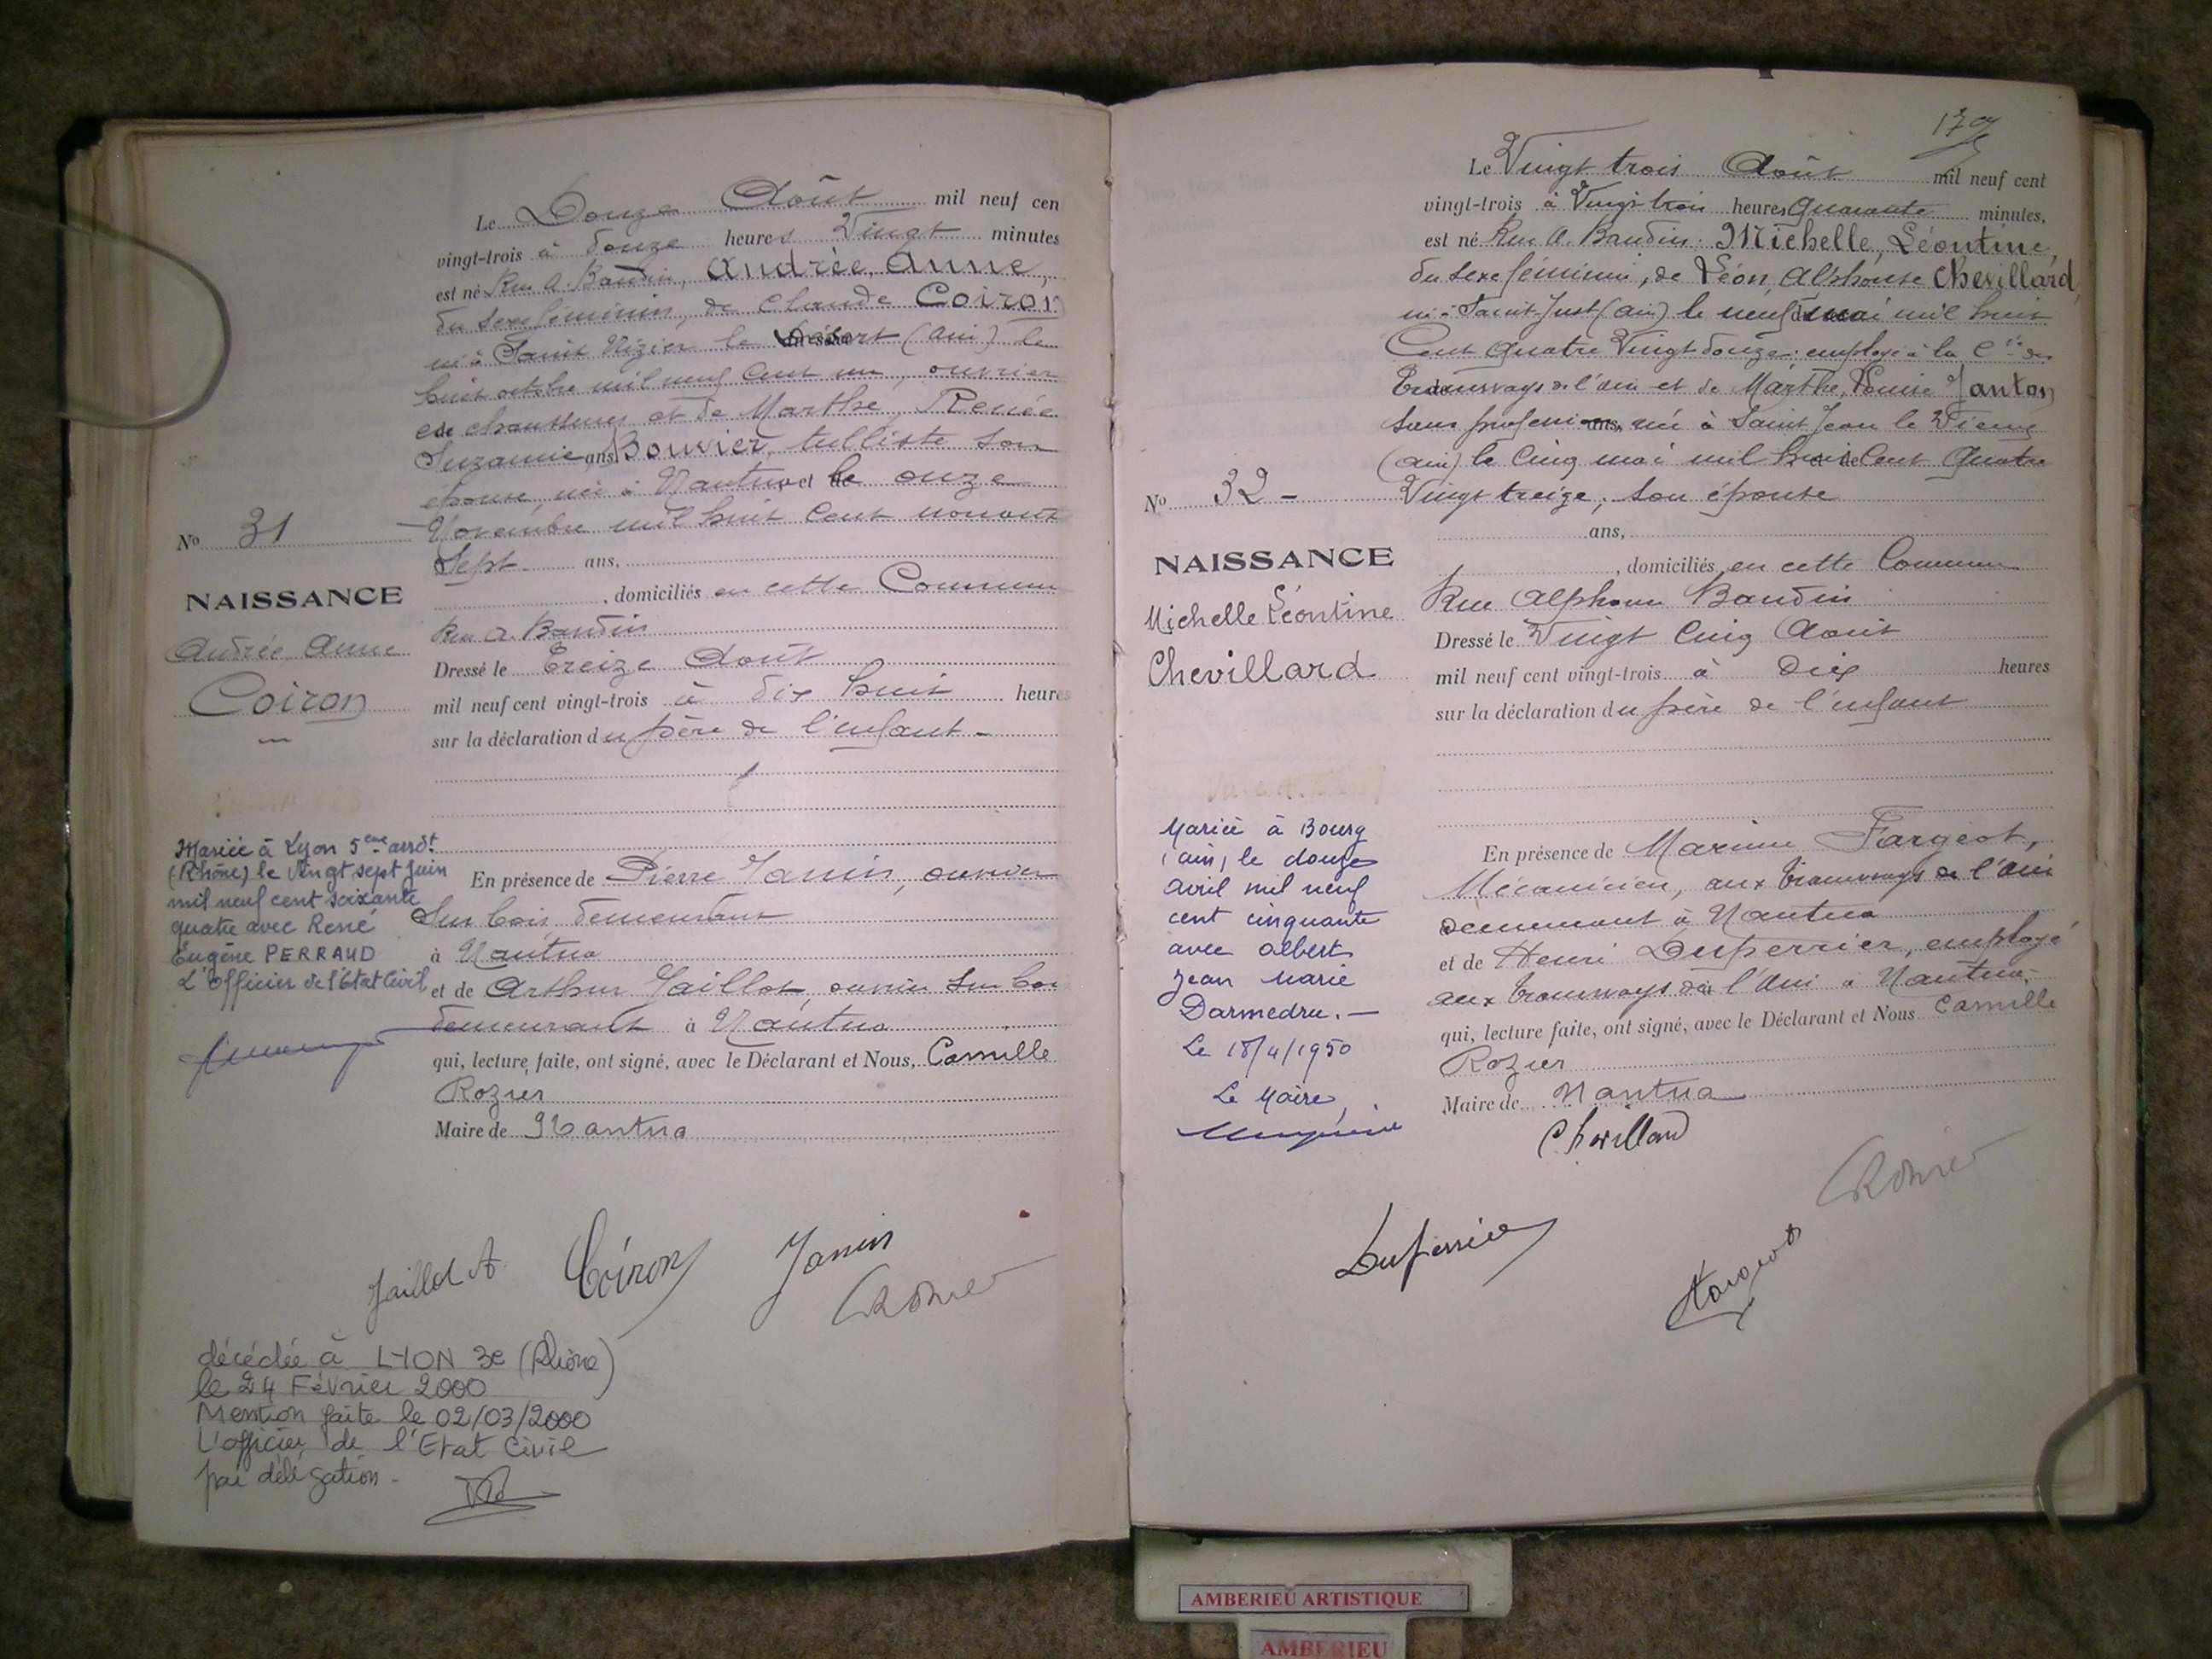 Le Douze Août mil neuf cen
vingt-trois à douze heures Vingt minutes
est né Rue A. Baudin, Andrée, Anne,
du sexe féminin, de Claude Coiron
né à Saint Nizier le Désert (ain) le
huit octobre mil neuf cent un, ouvrier
en chaussures et de Marthe, Renée
Suzanne ans Bouvier, tulliste son
épouse, née à Nantua et le onze
Novembre mil huit cent nonante
Sept ans,
, domiciliés en cette Commune
Rue A. Baudin
Dressé le Treize Août
mil neuf cent vingt-trois à dix huit heures
sur la déclaration du père de l'enfant -
En présence de Pierre Janin, ouvrier
Sur bois, demeurant
à Nantua
et de Arthur Jaillot, ouvrier sur bois
demeurant à Nantua
qui, lecture faite, ont signé, avec le Déclarant et Nous, Camille
Rozier
Maire de Nantua
No 31
NAISSANCE
Andrée Anne
Coiron
Mariée à Lyon 5ème arrdt
(Rhône) le Vingt sept Juin
mil neuf cent soixante
quatre avec René
Eugène PERRAUD
L'Officier de l'Etat Civil
Jaillot A Coiron Janin
CRozier
décédée à LYON 3e (Rhône)
le 24 Février 2000
Mention faite le 02/03/2000
L'officier de l'Etat Civil
par délégation -
179
Le Vingt trois Août mil neuf cent
vingt-trois à Vingt trois heures quarante minutes,
est né Rue A. Baudin Michelle, Léontine,
du sexe féminin, de Léon, Alphonse Chevillard,
né à Saint Just (ain) le neuf mai mil huit
Cent quatre Vingt douze; employé à la Cie des
Tramways de l'ain et de Marthe, Louise Janton
sans profession, née à Saint Jean le Vieux
(ain) le cinq mai mil huit Cent Quatre
Vingt treize; son épouse
ans,
, domiciliés en cette Commune
Rue Alphonse Baudin
Dressé le Vingt Cinq Août
mil neuf cent vingt-trois à Dix heures
sur la déclaration du père de l'enfant
En présence de Marius Fargeot,
Mécanicien, aux tramways de l'Ain
demeurant à Nantua
et de Henri Duperrier, employé
aux tramways de l'Ain à Nantua
qui, lecture faite, ont signé, avec le Déclarant et Nous Camille
Rozier
Maire de Nantua
No 32 -
NAISSANCE
Michelle Léontine
Chevillard
Mariée à Bourg
(ain) le douze
avril mil neuf
cent cinquante
avec Albert
Jean Marie
Darmedru. -
Le 18/4/1950
Le Maire,
Chevillard
CRozier
Duperrier
Fargeot
AMBERIEU ARTISTIQUE
AMBERIEU